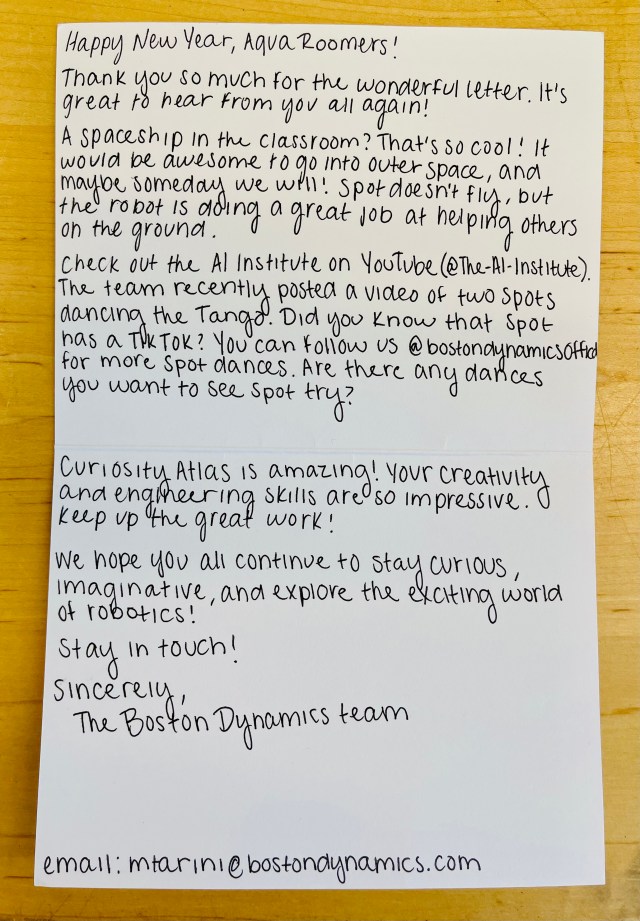 Happy New Year, Aqua Roomers!
Thank you so much for the wonderful letter. It's
great to hear from you all again!
A spaceship in the classroom? That's so cool! It
would be awesome to go into outer space, and
maybe someday we will! Spot doesn't fly, but
the robot is doing a great job at helping others
on the ground.
Check out the AI Institute on YouTube (@The-AI-Institute).
The team recently posted a video of two Spots
dancing the Tango. Did you know that Spot
has a TikTok? You can follow us
for more Spot dances. Are there any dances
you want to see Spot try?
Curiosity Atlas is amazing! Your creativity
and engineering skills are so impressive.
Keep up the great work!
We hope you all continue to stay curious,
imaginative, and explore the exciting world
of robotics!
Stay in touch!
Sincerely,
The Boston Dynamics team
email: mtarini@bostondynamics.com